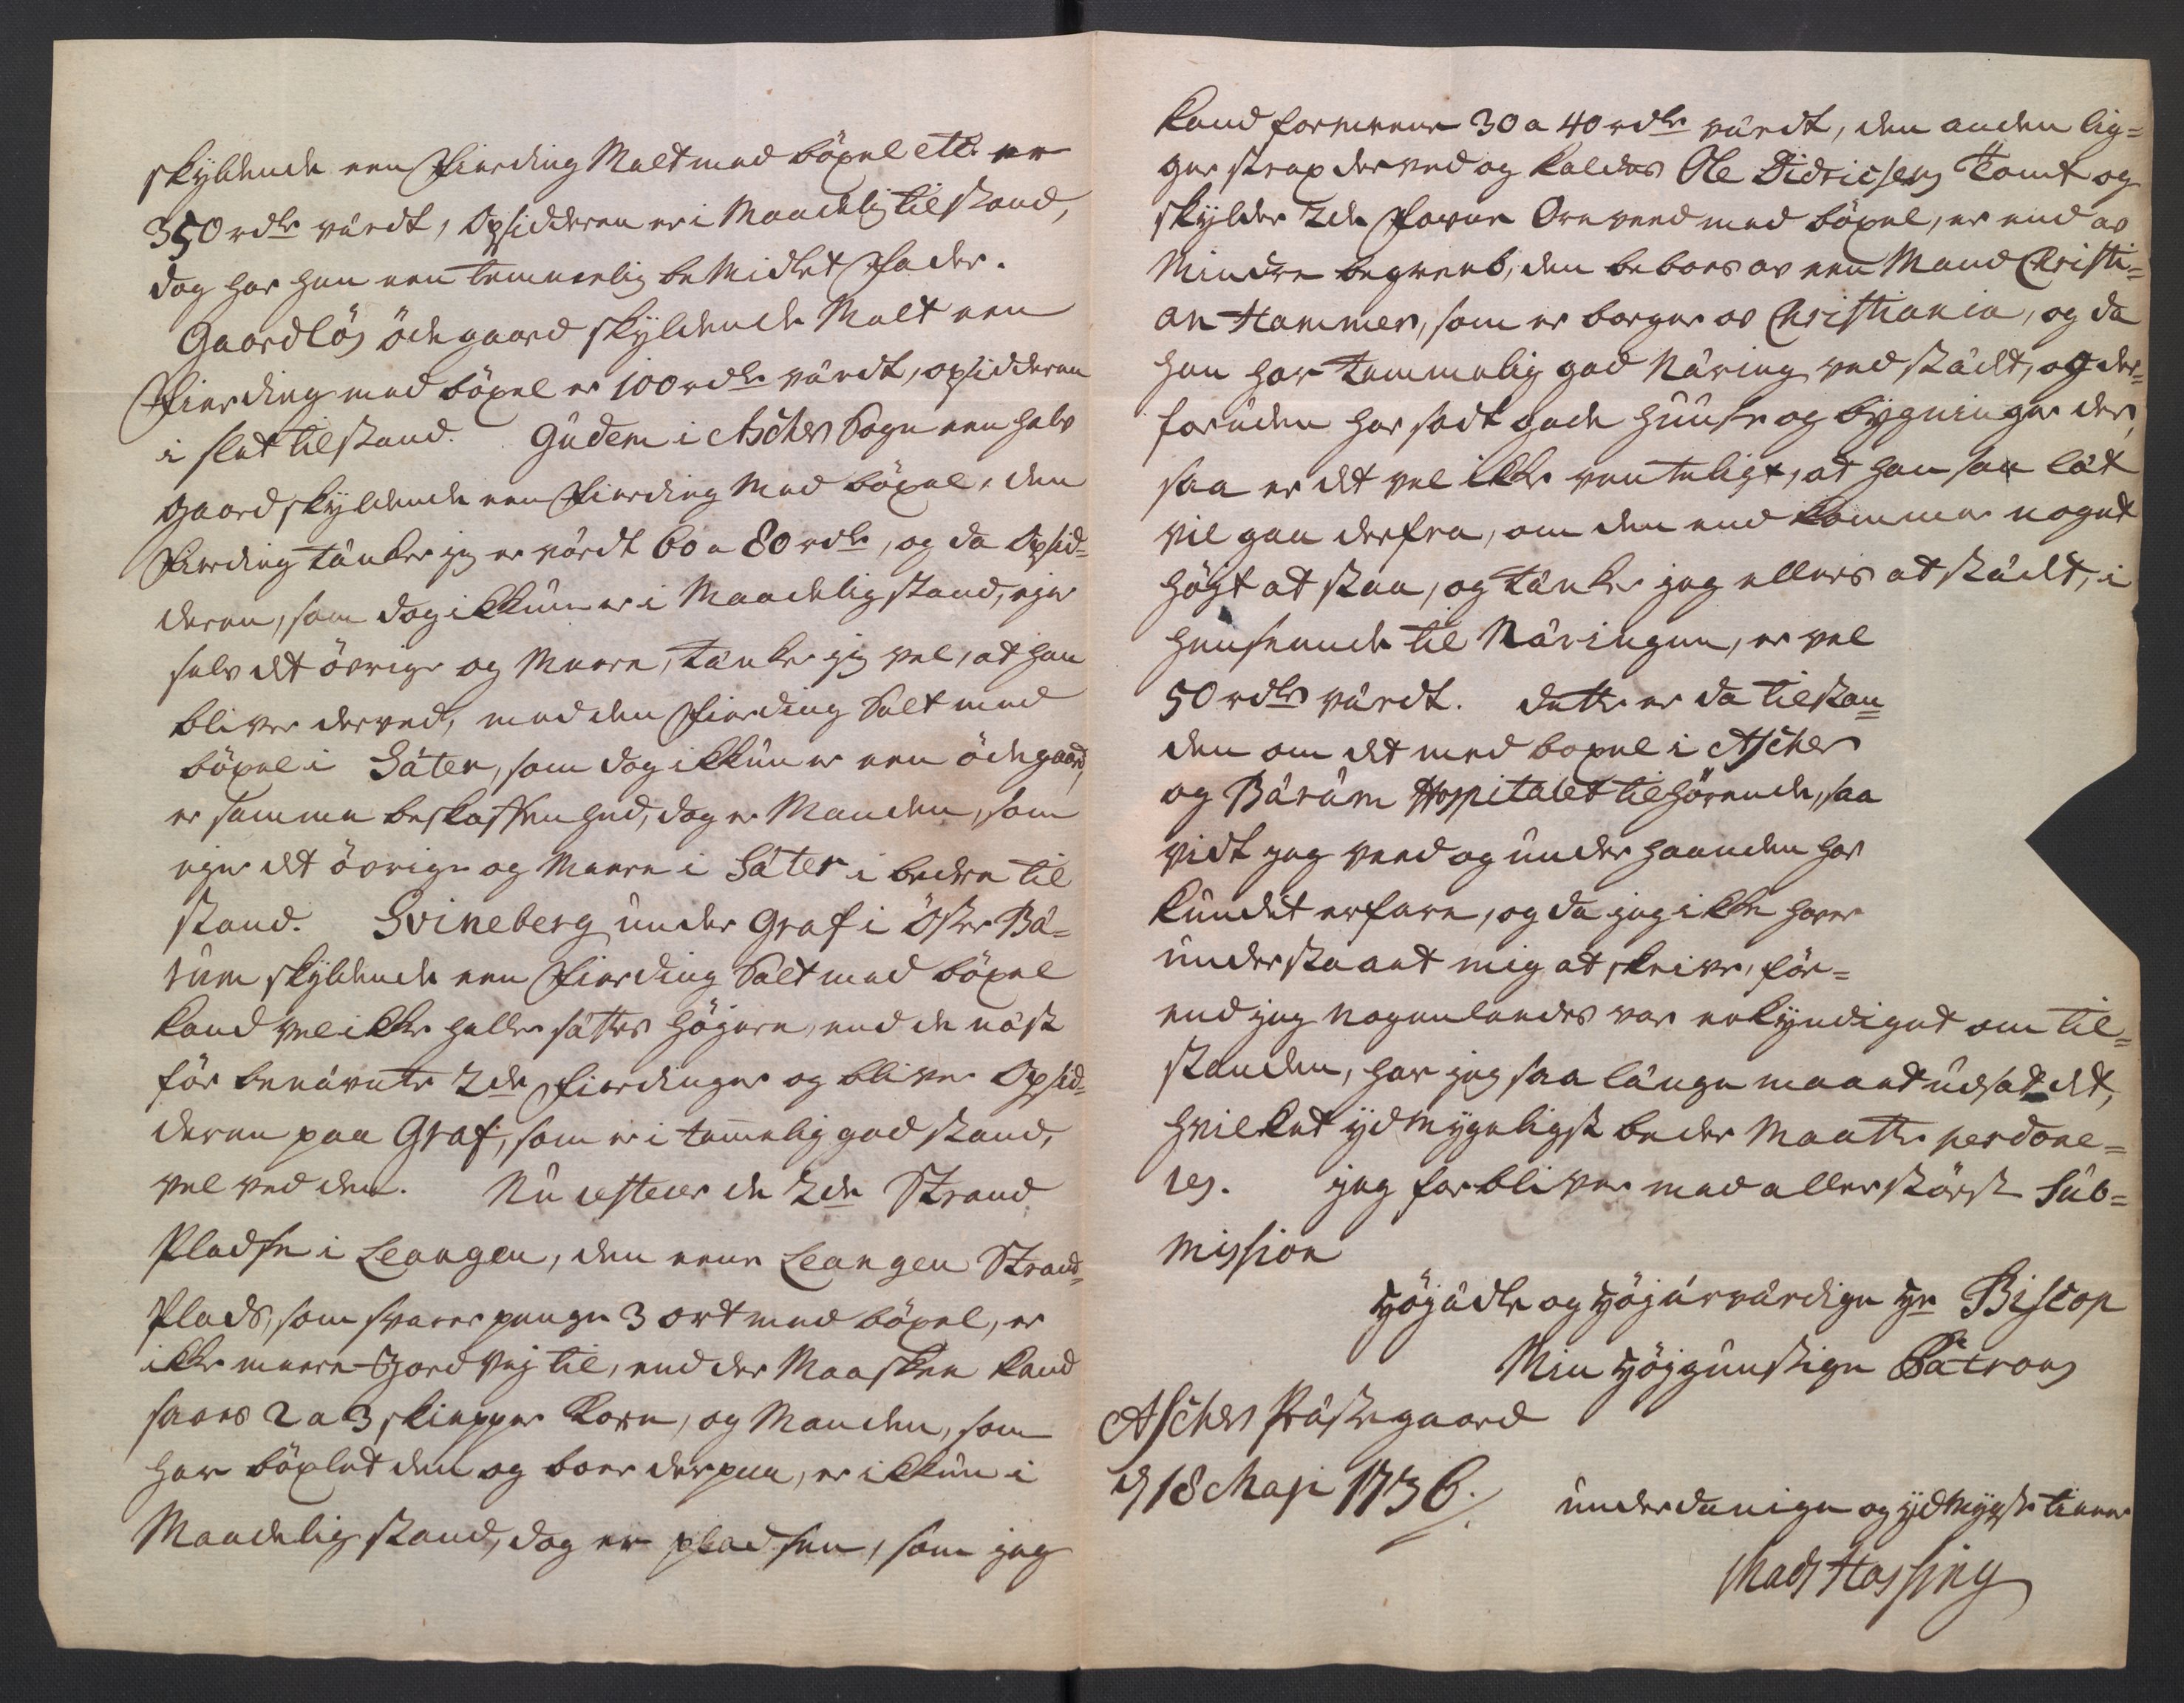 skyldende een Fierding Malt med böxel etc. er
350 rdlr värdt, Opsidderen er i Maadelig tilstand,
dog har han een temmelig beMidlet Fader.
Gaardlös ödegaard skyldende Malt een
Fierding med böxel er 100 rdlr värdt, opsidderen
i slet tilstand. Gudem i Ascher Sogn een halv
gaard skyldende een Fierding Med böxel, den
Fierding tänker jeg er värdt 60 a 80 rdlr, og da Opsid=
deren, som dog ikkun er i Maadelig stand, ejer
selv det övrige og Meere, tänker jeg vel, at han
bliver derved, med den Fierding Salt med
böxel i Säter, som dog ikkun er een ödegaard,
er samme beskaffenhed, dog er Manden, som
ejer det övrige og Meere i Säter i bedre til
stand. Svineberg under Graf i Öster Bä=
rum skyldende een Fierding Salt med böxel
kand vel ikke heller sättes höjere, end de näst
för benävnte 2de Fierdinger og bliver Opsid=
deren paa Graf, som er i temmelig god stand,
vel ved den. Nu resterer de 2de Strand
Pladse i Leangen, den eene Leangen Strand=
Plads, som svarer penge 3 ort med böxel, er
ikke meere Jordvej til, end der Maaskee kand
saaes 2 a 3 skiepper Korn, og Manden, som
har böxlet den og boer derpaa, er ikkun i
Maadelig stand, dog er pladsen, som jeg
kand formeene 30 a 40 rdlr värdt, den anden lig=
ger strax derved og kaldes Ole Didricsens Tomt og
skylder 2de Favne Oreveed med böxel, er end av
Mindre begreeb, den beboes av een Mand Christi=
an Hammer, som er borger av Christiania, og da
han har temmelig god Näring ved städet, og der=
foruden har sadt gode Huuse og bygninger der,
saa er det vel ikke venteligt, at han saa lät
vil gaa derfra, om den end kommer noget
högt at staa, og tänker jeg ellers at städet, i
henseende til Näringen, er vel
50 rdlr värdt. dette er da tilstan=
den om det med boxel i Ascher
og Bärum Hospitalet tilhörende, saa
vidt jeg veed og under haanden har
kundet erfare, og da jeg ikke haver
understaaet mig at skrive, för=
end jeg nogenlundes var erkyndiget om til=
standen, har jeg saa länge maaet udsat det,
hvilket ydMygeligst beder Maatte perdone=
res. jeg forbliver med allerstörst Sub=
mission
Höjädle og Höjärvärdige Hr Biscop
Min Höjgunstige Patrons
Ascher Prästegaard
d 18 Maji 1736.
underdanige og ydMygste tiener
Mads Hassing